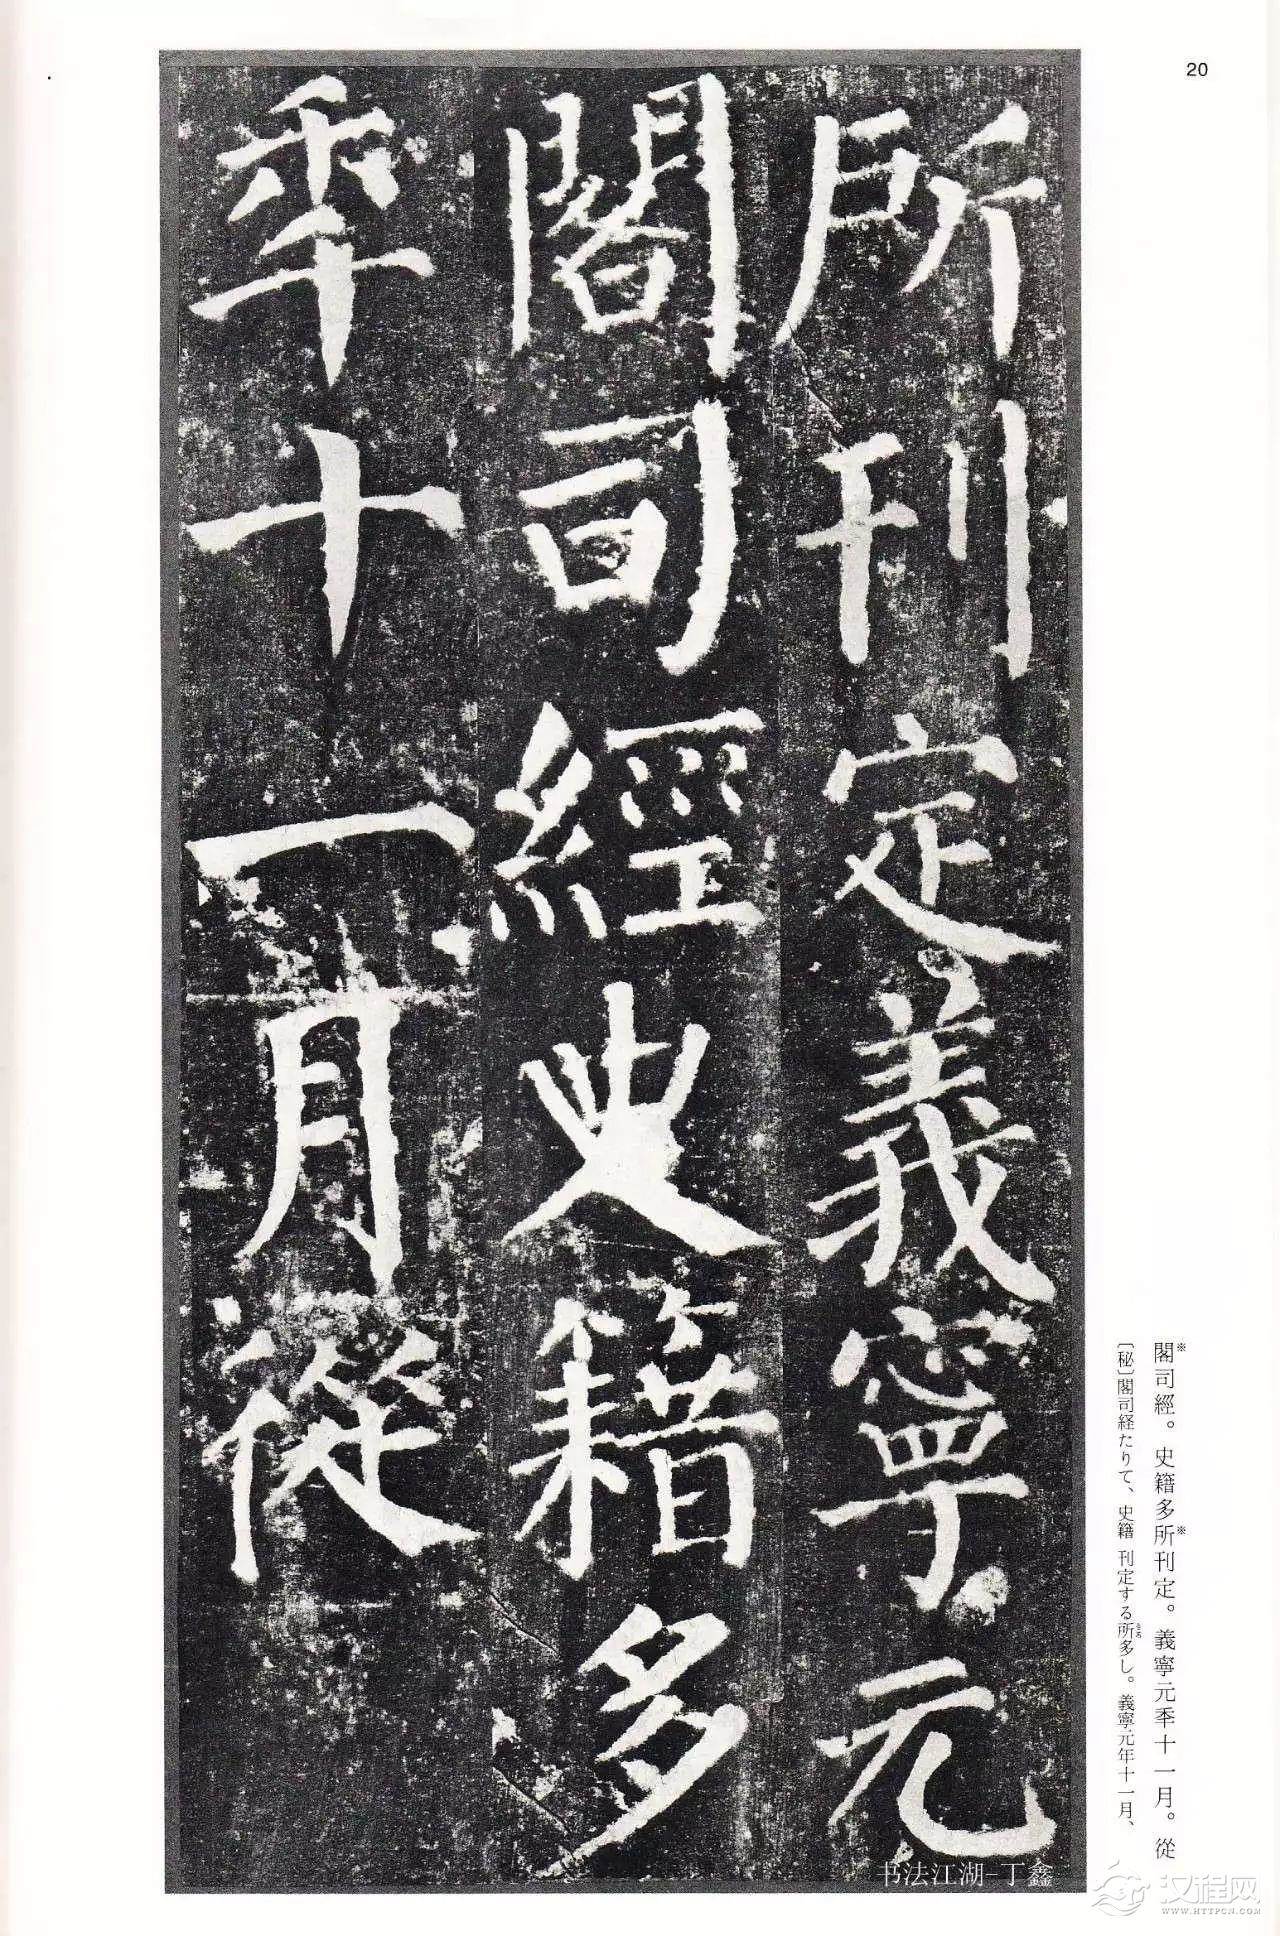 20
所刊定義寧元
閣司經史籍多
秊十一月從
※閣司經。史籍多※所刊定。義寧元秊十一月。從
〔秘〕閣司経たりて、史籍 刊定する所多し。義寧元年十一月、
书法江湖-丁鑫
汉程网
WWW.HTTPCN.COM